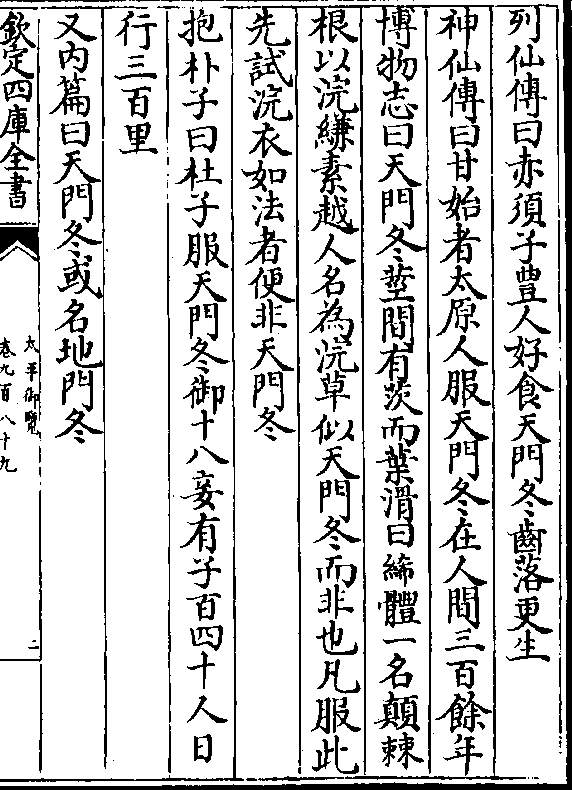 列仙傳曰赤須子豊人好食天門冬齒落更生
神仙傳曰甘始者太原人服天門冬在人間三百餘年
博物志曰天門冬莖間有茨而葉滑曰絺體一名顛棘
根以浣縑素越人名為浣草似天門冬而非也凡服此
先試浣衣如法者便非天門冬
抱朴子曰杜子服天門冬御十八妾有子百四十人日
行三百里
又内篇曰天門冬或名地門冬
欽定四庫全書
太平御覽
卷九百八十九
二